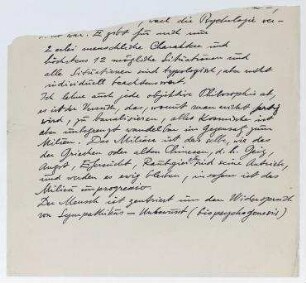 weil die Psychologie ver-
war. Es gibt für mich nur
2 erlei menschliche Charaktere und
höchstens 12 mögliche Situationen und
alle Situationen sind typologisch, aber nicht
individuell beachtenswert.
Ich lehne auch jede objektive Philosophie ab,
es ist der Versuch, das, womit man nicht fertig
wird, zu banalisieren, alles Kosmische ist
aber unbegrenzt wandelbar im Gegensatz zum
Milieu. Das Milieu ist das selbe, wie das
der Griechen oder alten Chinesen, d. h. Geiz,
Angst, Eifersucht, Raubgier sind seine Antriebe,
und werden es ewig bleiben, insofern ist das
Milieu in progressio
Der Mensch ist zentriert um den Widerspruch
von Sympathikus – Unbewusst (biopsychogenesis)